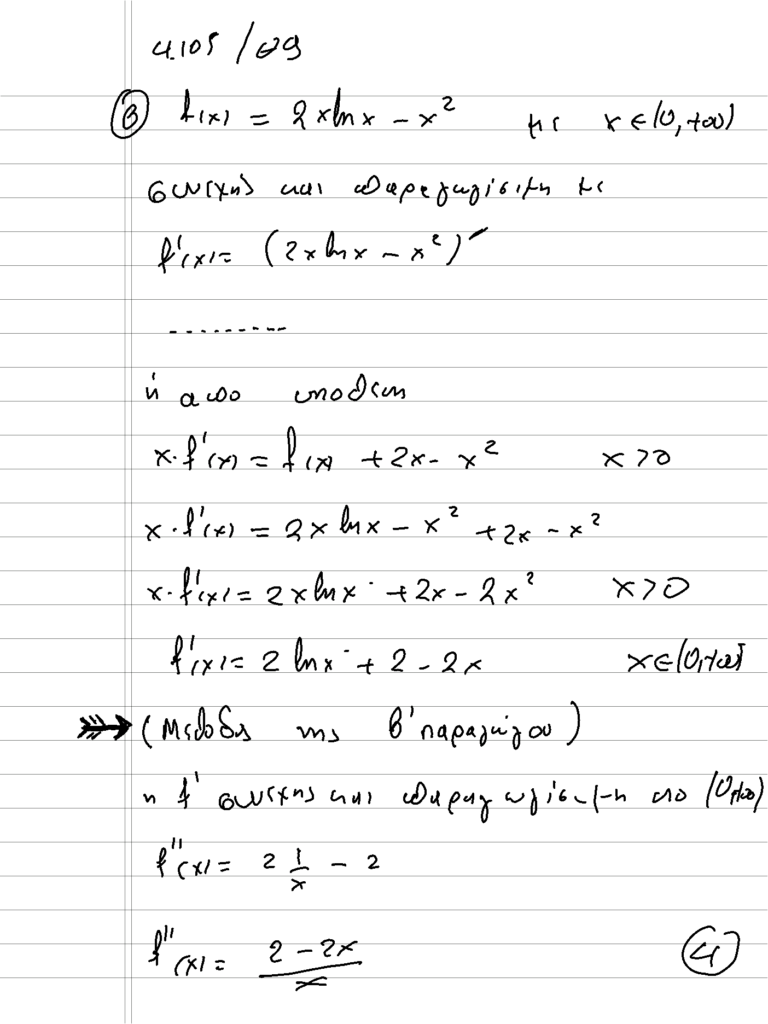 4.105 / 69
β f(x) = 2x ln x - x² με x ∈ (0, +∞)
συνεχής και παραγωγίσιμη με
f'(x) = (2x ln x - x²)'
..........
ή απο υποθεση
x·f'(x) = f(x) + 2x - x² x > 0
x·f'(x) = 2x ln x - x² + 2x - x²
x·f'(x) = 2x ln x + 2x - 2x² x > 0
f'(x) = 2 ln x + 2 - 2x x ∈ (0, +∞)
(Μεθοδος της β' παραγώγου)
η f' συνεχης και παραγωγίσιμη στο (0, +∞)
f''(x) = 2 1/x - 2
f''(x) = (2 - 2x)/x
4